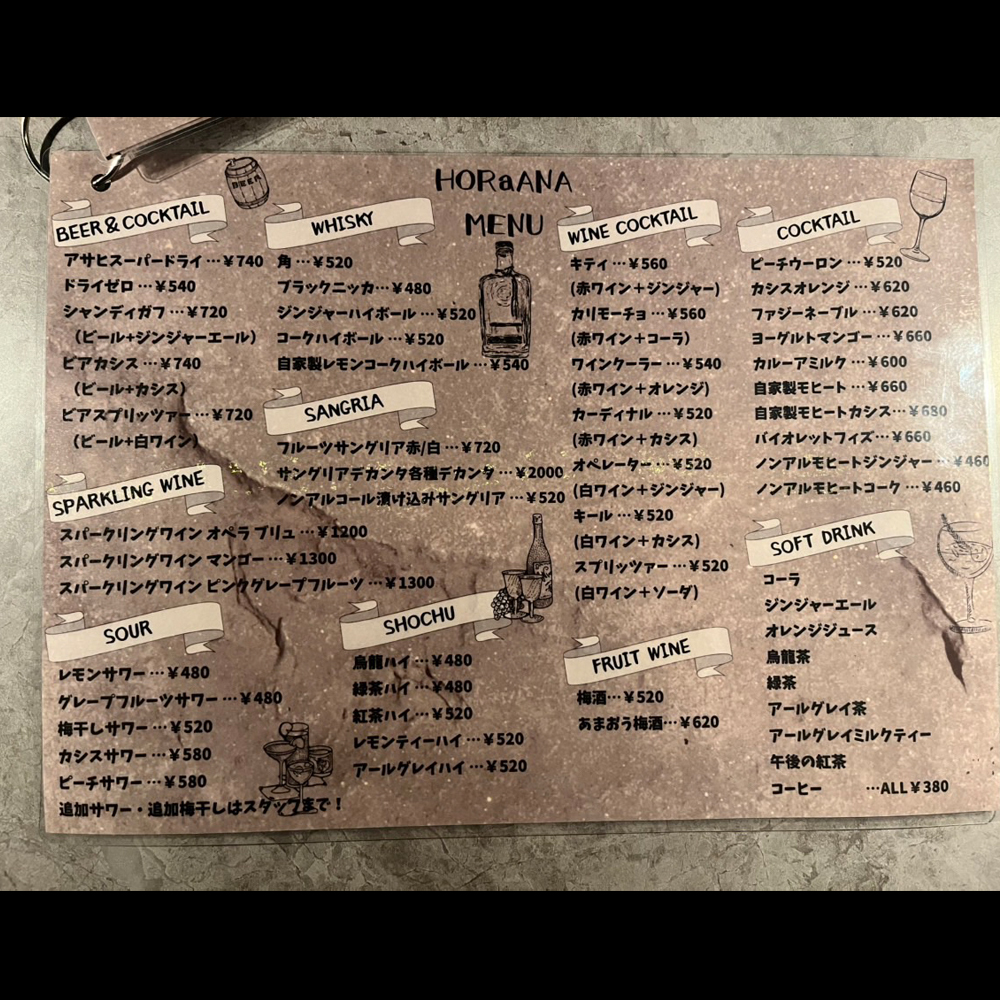 HORaANA
MENU
BEER
BEER & COCKTAIL
アサヒスーパードライ…¥740
ドライゼロ…¥540
シャンディガフ…¥720
（ビール+ジンジャーエール）
ビアカシス…¥740
（ビール+カシス）
ビアスプリッツァー…¥720
（ビール+白ワイン）
SPARKLING WINE
スパークリングワイン オペラ ブリュ…¥1200
スパークリングワイン マンゴー…¥1300
スパークリングワイン ピンクグレープフルーツ…¥1300
SOUR
レモンサワー…¥480
グレープフルーツサワー…¥480
梅干しサワー…¥520
カシスサワー…¥580
ピーチサワー…¥580
追加サワー・追加梅干しはスタッフまで！
WHISKY
角…¥520
ブラックニッカ…¥480
ジンジャーハイボール…¥520
コークハイボール…¥520
自家製レモンコークハイボール…¥540
SANGRIA
フルーツサングリア赤/白…¥720
サングリアデカンタ各種デカンタ…¥2000
ノンアルコール漬け込みサングリア…¥520
SHOCHU
烏龍ハイ…¥480
緑茶ハイ…¥480
紅茶ハイ…¥520
レモンティーハイ…¥520
アールグレイハイ…¥520
WINE COCKTAIL
キティ…¥560
(赤ワイン＋ジンジャー)
カリモーチョ…¥560
(赤ワイン＋コーラ)
ワインクーラー…¥540
(赤ワイン＋オレンジ)
カーディナル…¥520
(赤ワイン＋カシス)
オペレーター…¥520
(白ワイン＋ジンジャー)
キール…¥520
(白ワイン＋カシス)
スプリッツァー…¥520
(白ワイン＋ソーダ)
FRUIT WINE
梅酒…¥520
あまおう梅酒…¥620
COCKTAIL
ピーチウーロン…¥520
カシスオレンジ…¥620
ファジーネーブル…¥620
ヨーグルトマンゴー…¥660
カルーアミルク…¥600
自家製モヒート…¥660
自家製モヒートカシス…¥680
バイオレットフィズ…¥660
ノンアルモヒートジンジャー…¥460
ノンアルモヒートコーク…¥460
SOFT DRINK
コーラ
ジンジャーエール
オレンジジュース
烏龍茶
緑茶
アールグレイ茶
アールグレイミルクティー
午後の紅茶
コーヒー …ALL¥380